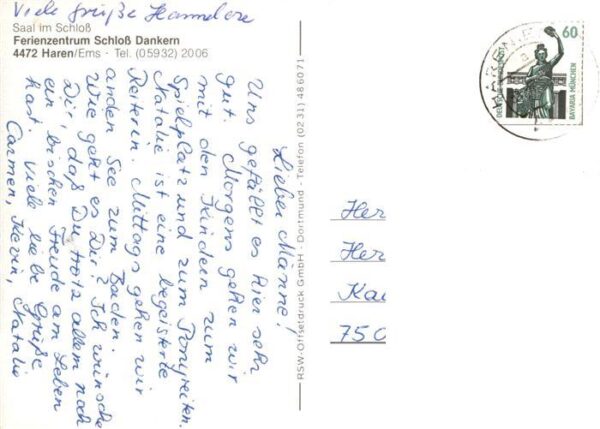 Viele Grüße Hannelore
Saal im Schloß
Ferienzentrum Schloß Dankern
4472 Haren/Ems · Tel. (05932) 2006
Lieber Männe!
Uns gefällt es hier sehr
gut. Morgens gehen wir
mit den Kindern zum
Spielplatz und zum Ponyreiten.
Natalie ist eine begeisterte
Reiterin. Mittags gehen wir
an den See zum Baden.
Wie geht es Dir? Ich wünsche
Dir, daß Du trotz allem noch
ein bischen Freude am Leben
hast. Viele liebe Grüße
Carmen, Kevin, Natalie
RSW-Offsetdruck GmbH · Dortmund · Telefon (02 31) 48 60 71
60
DEUTSCHE BUNDESPOST
BAVARIA MÜNCHEN
HAREN, E
Her
Her
Kai
750